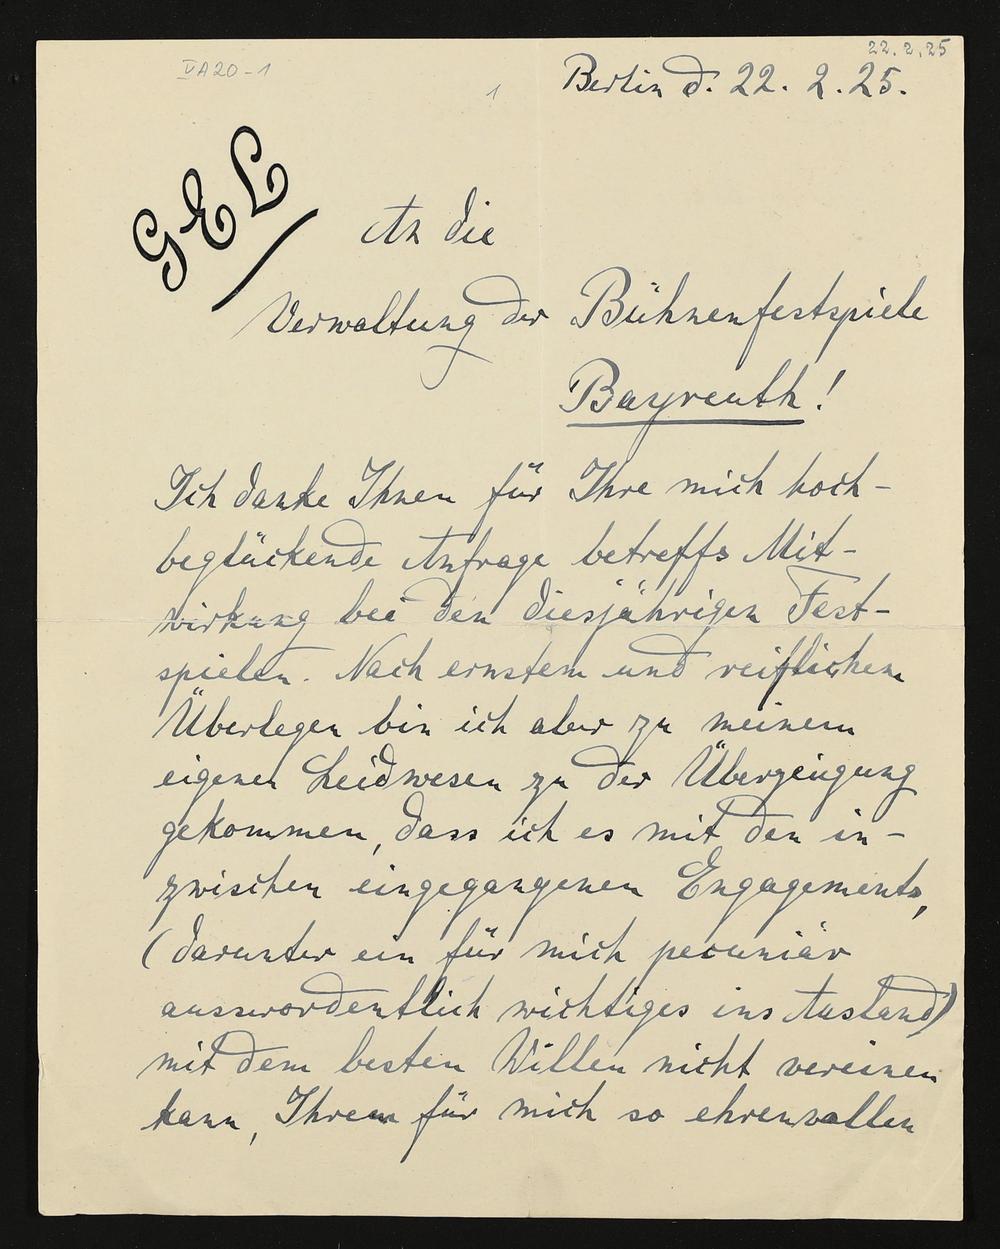 22.2.25
VA20-1
1
Berlin d. 22. 2. 25.
GEL
An die
Verwaltung der Bühnenfestspiele
Bayreuth!
Ich danke Ihnen für Ihre mich hoch-
beglückende Anfrage betreffs Mit-
wirkung bei den diesjährigen Fest-
spielen. Nach ernstem und reiflichem
Überlegen bin ich aber zu meinem
eigenen Leidwesen zu der Überzeugung
gekommen, dass ich es mit den in-
zwischen eingegangenen Engagements,
(darunter ein für mich pecuniär
ausserordentlich wichtiges ins Ausland)
mit dem besten Willen nicht vereinen
kann, Ihrem für mich so ehrenvollen